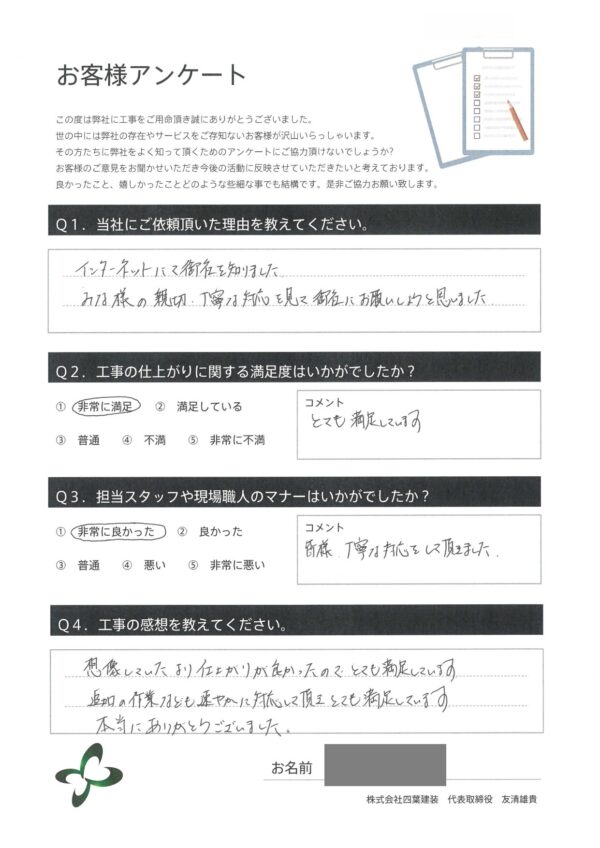 お客様アンケート
この度は弊社に工事をご用命頂き誠にありがとうございました。
世の中には弊社の存在やサービスをご存知ないお客様が沢山いらっしゃいます。
その方たちに弊社をよく知って頂くためのアンケートにご協力頂けないでしょうか?
お客様のご意見をお聞かせいただき今後の活動に反映させていただきたいと考えております。
良かったこと、嬉しかったことどのような些細な事でも結構です。是非ご協力お願い致します。
Q１．当社にご依頼頂いた理由を教えてください。
インターネットにて御社を知りました
みな様の親切、丁寧な対応を見て御社にお願いしようと思いました
Q２．工事の仕上がりに関する満足度はいかがでしたか？
① 非常に満足 ② 満足している
③ 普通 ④ 不満 ⑤ 非常に不満
コメント
とても満足しています
Q３．担当スタッフや現場職人のマナーはいかがでしたか？
① 非常に良かった ② 良かった
③ 普通 ④ 悪い ⑤ 非常に悪い
コメント
皆様、丁寧な対応をして頂きました．
Q４．工事の感想を教えてください。
想像していたより仕上がりが良かったのでとても満足しています
追加の作業なども速やかに対応して頂きとても満足しています
本当にありがとうございました。
お名前
株式会社四葉建装 代表取締役 友清雄貴